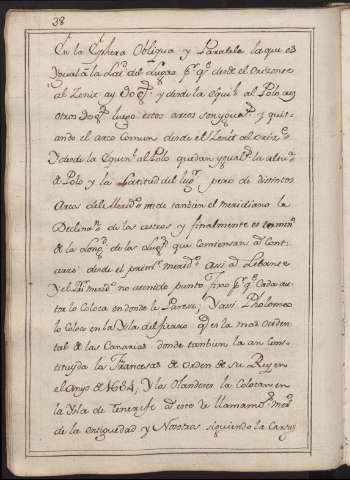 38
En la Esphera Obliqua y Paralela la que es
Ygual a la Lat.d del Lugar p.r q.e desde el Orizonte
al Zenit ay 90 g.s y desde la Equi.l al Polo ay
otros 90 g.s luego estos arcos son yguales, y quit-
ando el arco Comun desde el Zenit al Orizte
Y desde la Equin.l al Polo quedan yguales la altu.a
de Polo y la Latitud del lug.r pero de distintos
Arcos del Merid.o mide tambien el meridiano la
Declina.n de los astros y finalmente es termin.o
de la Long.d de los Lug.s que Comiensan a Cont-
arse desde el prim.r merid.o asi a Lebante
Y el p.r merid.o no a tenido punto fixo p.r q.e Cada au-
tor lo Coloca en donde le Parese, Y assi Ptholomeo
lo Coloco en la Ysla del fierro q.e es la mas Ocsiden-
tal de las Canarias donde tambien la an Cons-
tituyda los Francesas de Orden de su Rey en
el Anyo de 1684, Y los Olanderes la Colocan en
la Ysla de Tenerife a esto se llama mer.
de la antiguedad y Nosotros siguiendo la Cartas